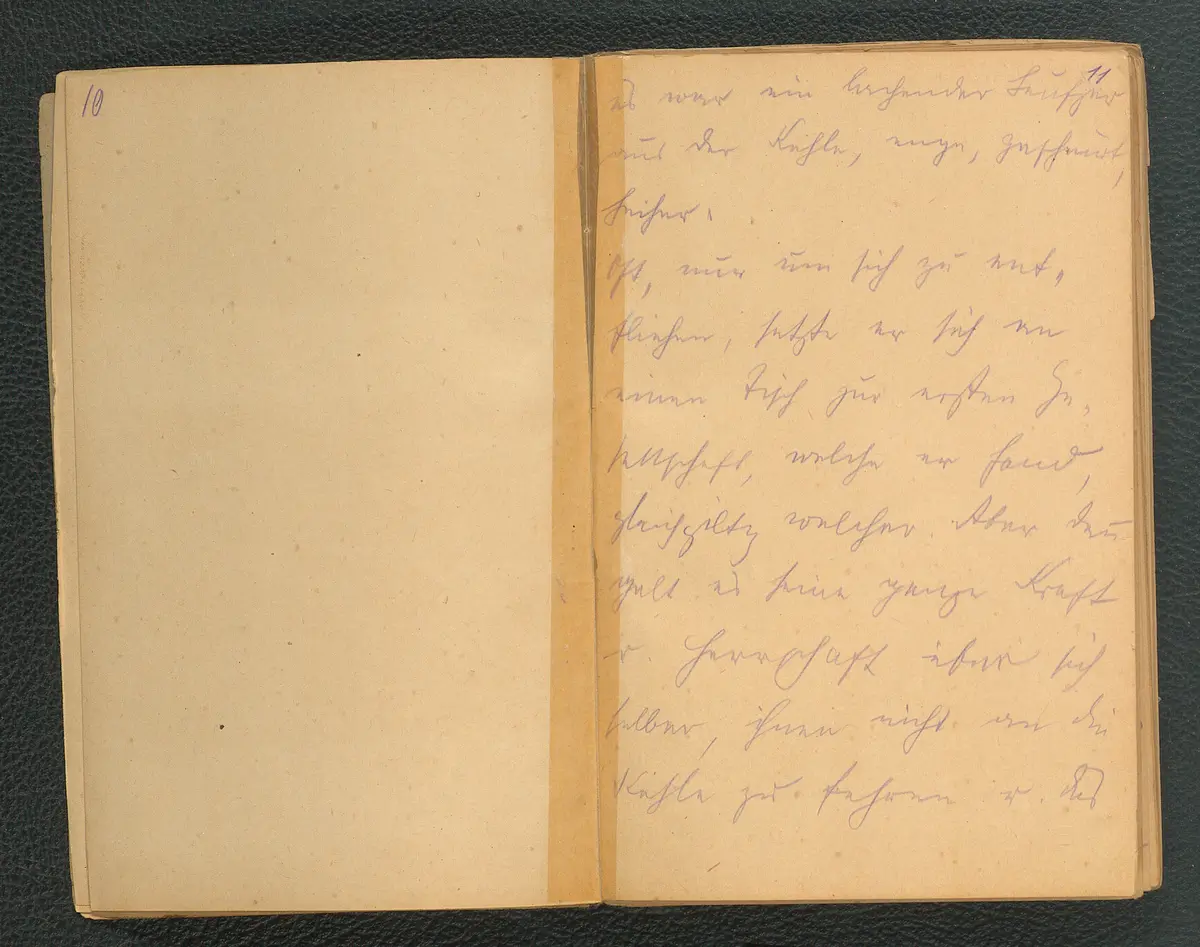 10
11
es war ein lachender Seufzer
aus der Kehle, enge, geschnürt,
heiser.
Oft, nur um sich zu ent-
fliehen, setzte er sich an
einen Tisch zur ersten Ge-
sellschaft, welche er fand,
gleichgiltig welcher. Aber dann
galt es seine ganze Kraft
u. Herrschaft über sich
selber, ihnen nicht an die
Kehle zu fahren u. das